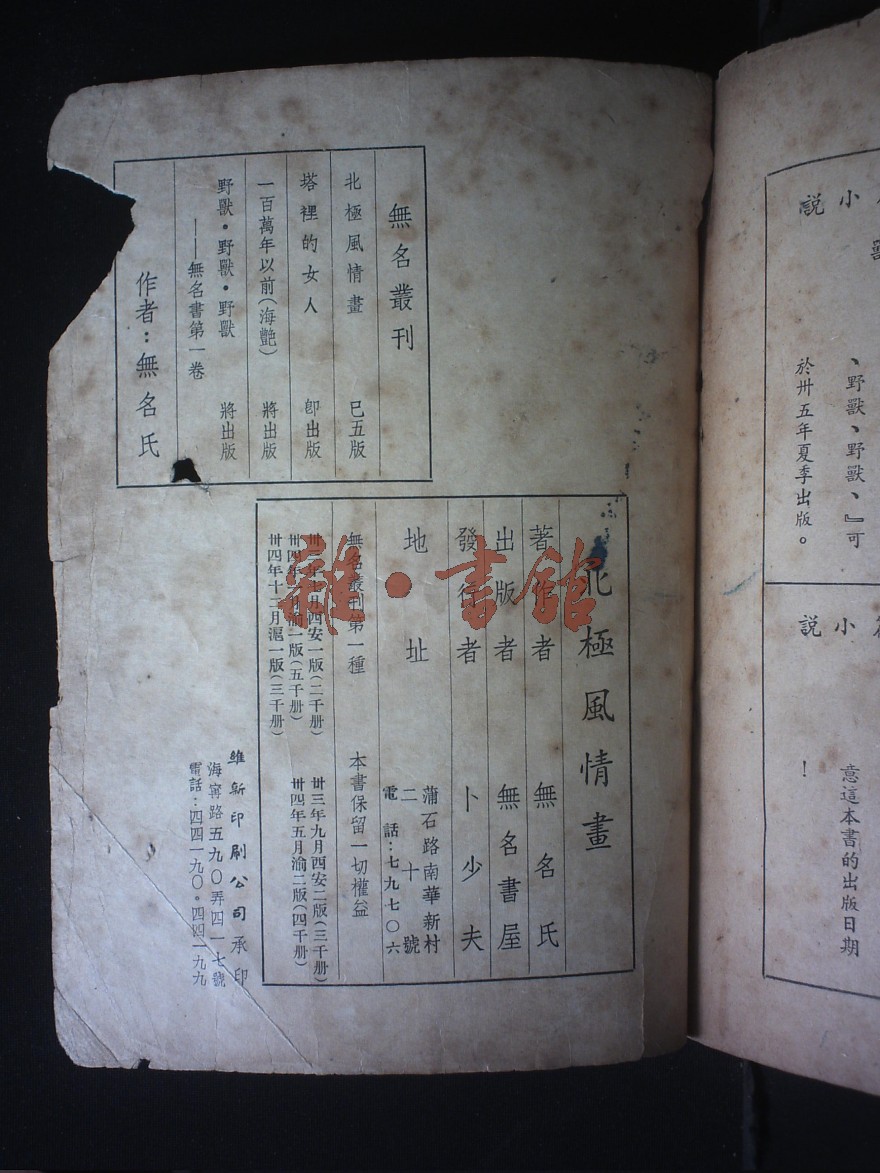 小説
獸
、野獸、野獸、』可
於卅五年夏季出版。
小説
意這本書的出版日期
！
無名叢刊
北極風情畫 已五版
塔裡的女人 卽出版
一百萬年以前(海艷) 將出版
野獸•野獸•野獸 將出版
——無名書第一卷
作者：無名氏
北極風情畫
著作者 無名氏
出版者 無名書屋
發行者 卜少夫
地址 蒲石路南華新村
二十號
電話：七九七〇六
無名叢刊第一種 本書保留一切權益
月西安一版(二千册) 卅三年九月西安二版(三千册)
卅四年 月渝一版(五千册) 卅四年五月渝二版(四千册)
卅四年十二月滬一版(三千册)
維新印刷公司承印
海寧路五九〇弄四一七號
電話：四四一九〇•四四一九九
雜•書館